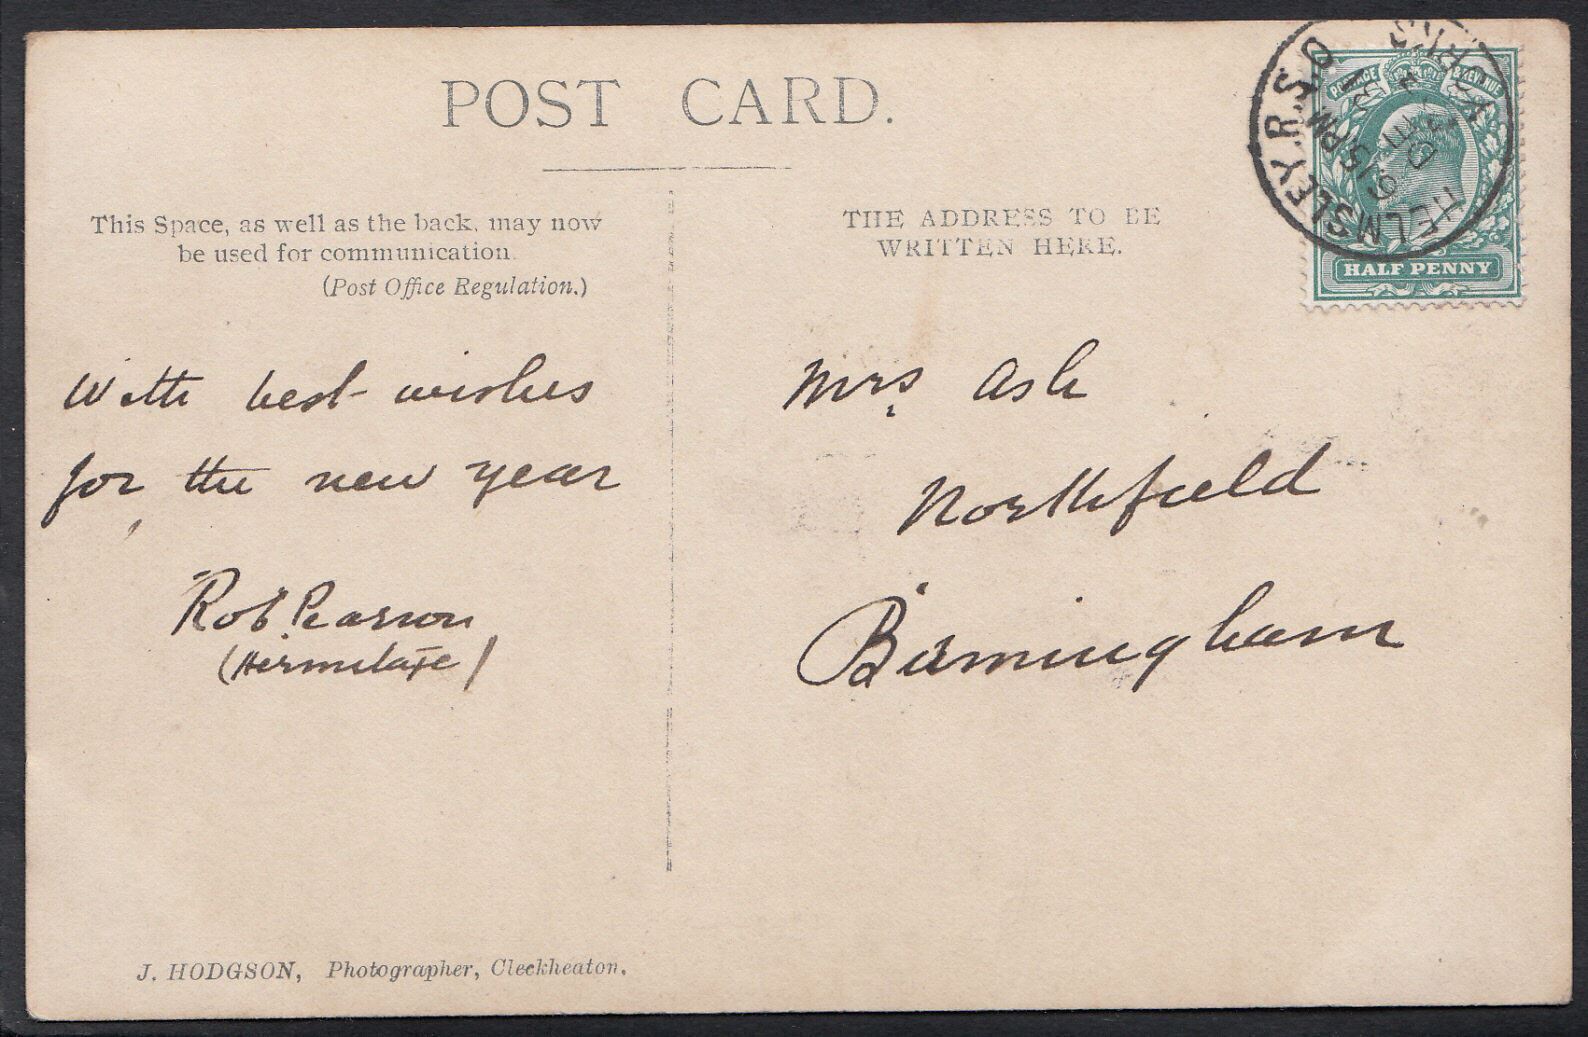 POST CARD.
This Space, as well as the back, may now
be used for communication.
(Post Office Regulation.)
THE ADDRESS TO BE
WRITTEN HERE.
POSTAGE & REVENUE
HALF PENNY
HELMSLEY. R.S.O
YORKS
6 15 PM
With best wishes
for the new year
Rob. Pearson
(Hermitage)
Mrs. Ash
Northfield
Birmingham
J. HODGSON, Photographer, Cleckheaton.